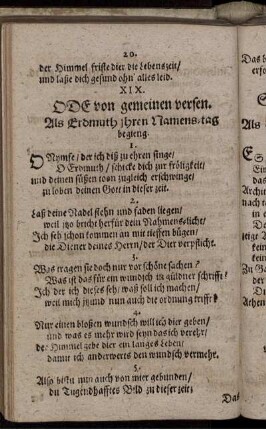 20.
der Himmel friste dier die Lebenszeit/
und laße dich gesund ohn' alles leid.
XIX.
ODE von gemeinen versen.
Als Erdmuth ihren Namens-tag
begieng.
1.
O Nymfe/ der ich diß zu ehren singe/
O Erdmuth/ schicke dich zur fröligkeit/
und deinen süßen tohn zugleich erschwinge/
zu loben deinen Gott in dieser zeit.
2.
Laß deine Nadel stehn und faden liegen/
weil itzo bricht herfür dein Nahmens-licht/
Ich seh schon kommen an mit tieffen bügen/
die Diener deines Herrn/ der Dier verpflicht.
3.
Was tragen sie doch nur vor schöne sachen?
Was ist das für ein wundsch in güldner schrifft?
Ich der ich dieses seh/ waß soll ich machen/
weil mich itzund nun auch die ordnung trifft?
4.
Nur einen bloßen wundsch will ich dier geben/
und was es mehr wird seyn das ich verehr/
der Himmel gebe dier ein langes Leben/
damit ich anderwerts den wundsch vermehr.
5.
Also bistu nun auch von mier gebunden/
du Tugendhafftes Bild zu dieser zeit;
Das